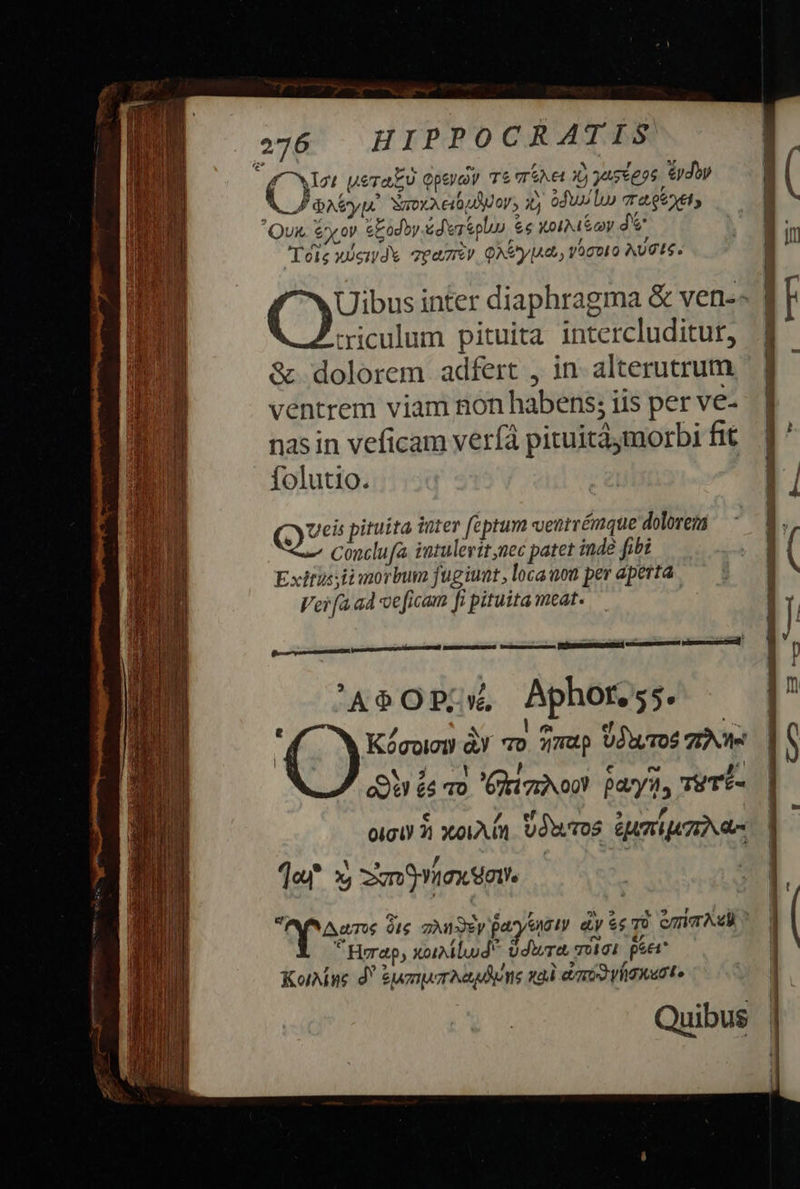 276 HIPPOCRATIS
Οἷσι μεταξὺ φρενῶν τε πέλει καὶ γαστέρος ἔνδον
φλέγμ' ἀποκλειόμενον, καὶ ὀδύνην παρέχει,
Οὐκ ἔχον ἔξοδον οὐδετέρην ἐς κοιλιέων δὲ·
Τοῖς κύστινδε τραπὲν φλέγμα, νόσοιο λύσις.
QUibus inter diaphragma & ven-
triculum pituita intercluditur,
& dolorem adfert , in alterutrum
ventrem viam non habens; iis per ve-
nas in veſicam verſâ pituitâ, morbi fit
ſolutio.
QUeis pituita inter ſeptum ventrémque dolorem
Concluſa intulerit, nec patet inde ſibi
Exitus; ii morbum fugiunt, loca non per aperta
Verſa ad veſicam ſi pituita meat.
ἈΦΟΡ. νέ. Aphor. 55.
ὉΚόσοισιν ἂν τὸ ἧπαρ ὕδατος πλη-
σθὲν ἐς τὸ ἐπίπλοον ῥαγῇ, τουτέ-
οισιν ἡ κοιλίη ὕδατος ἐμπίμπλα-
ται καὶ ἀποθνήσκουσιν.
ὝΔατος οἷς πλησθὲν ῥαγέῃσιν ἂν ἐς τὸ ἐπίπλουν
Ἧπαρ, κοιλίηνδ' ὕδατα τοῖσι ῥέει·
Κοιλίης δ' ἐμπιμπλαμένης καὶ ἀποθνήσκουσι.
Quibus